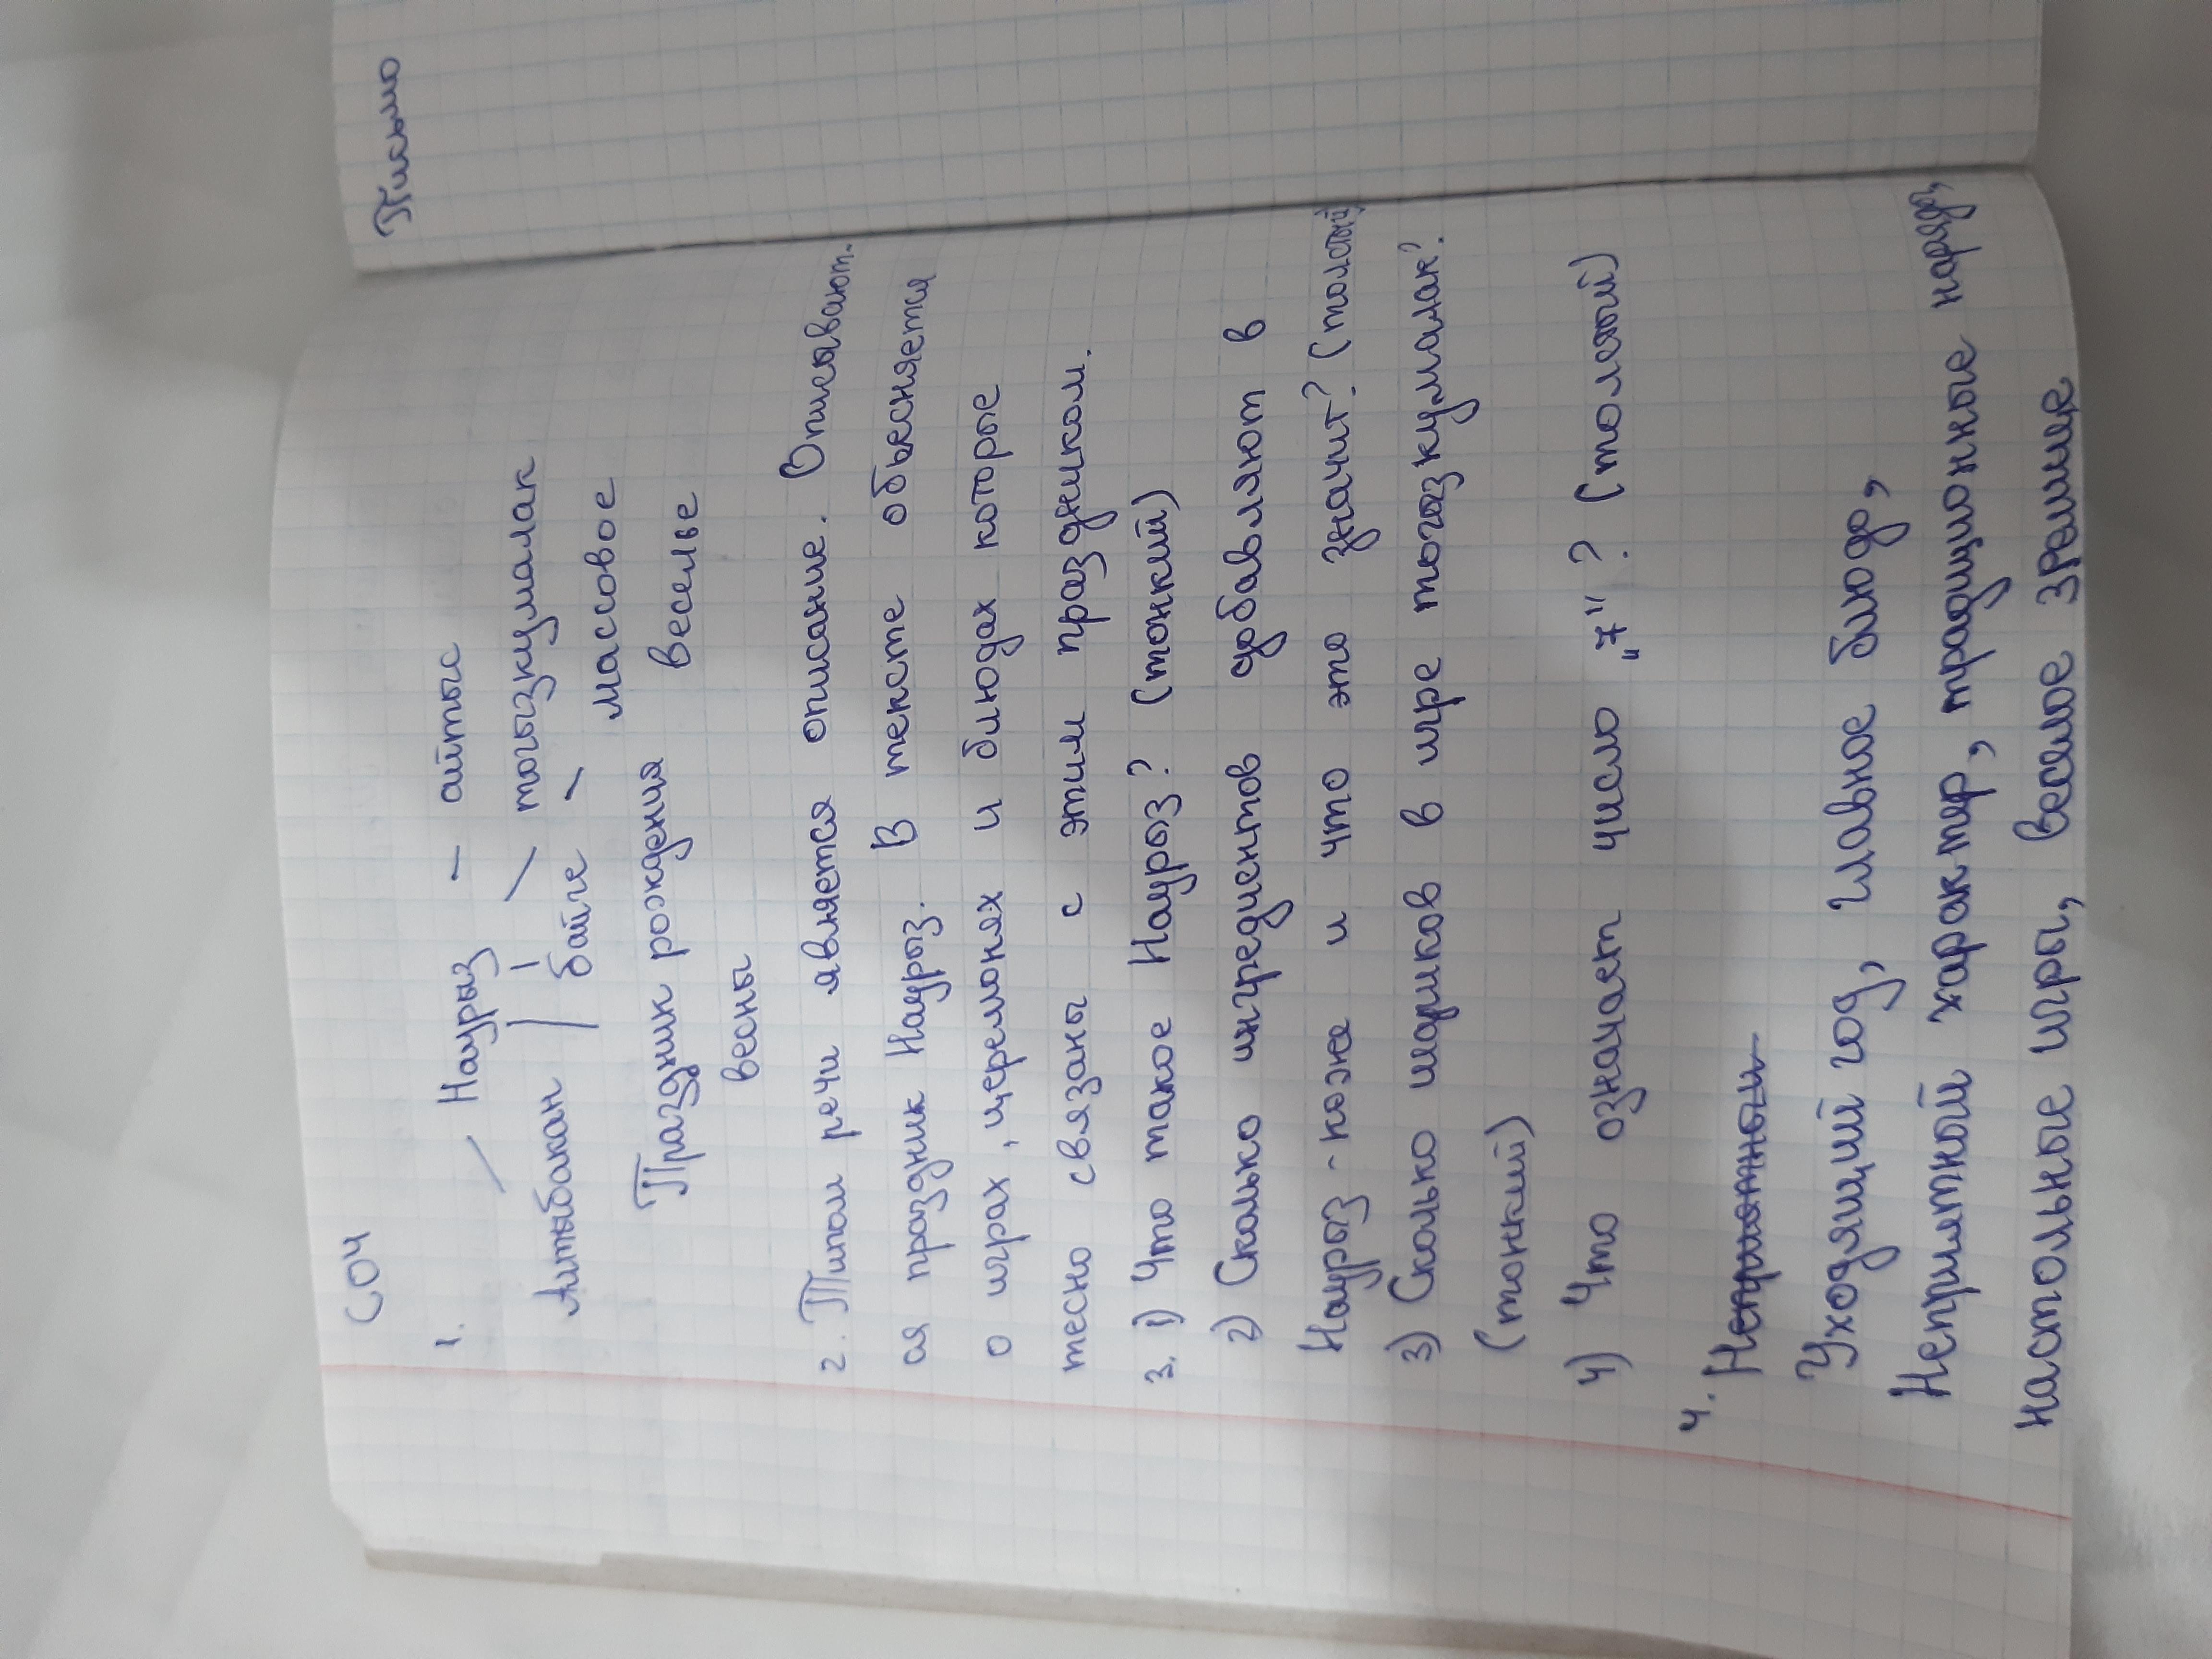 СОЧ
1. Наурыз – айтыс
Алтыбакан байге тогызкумалак
массовое
Праздник рождения веселье
весны
2. Типом речи является описание. Описывают-
ся праздник Наурыз. В тексте объесняется
о играх, церемонях и блюдах которые
тесно связаны с этим праздником.
3. 1) Что такое Наурыз? (тонкий)
2) Сколько ингредиентов добавляют в
Наурыз-коже и что это значит? (толстый)
3) Сколько шариков в игре тогызкумалак?
(тонкий)
4) Что означает число „7"? (толстый)
4.
Уходящий год, главное блюдо,
традиционные
настольные игры,
Письмо